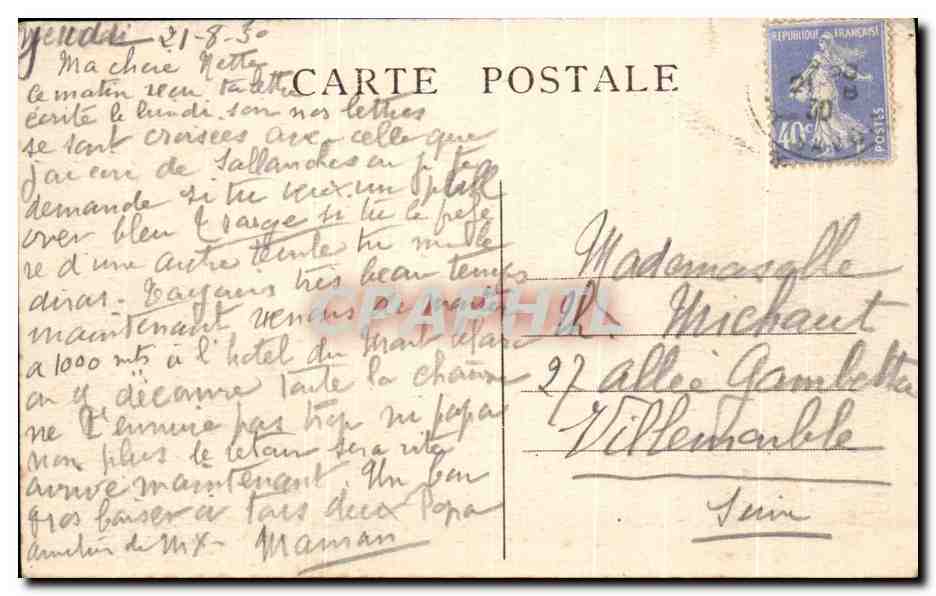 Jeudi 21-8-30
Ma chere Nette
CARTE POSTALE
ce matin recu ta lettre
écrite le lundi. son nos lettres
se sont croisées avec celle que
j'ai de Sallanches
demande si tu veux un pull
over bleu si tu le prefe
re d'une autre teinte tu me le
diras. Toujours très beau temps
maintenant venons de
a 1000 mts à l'hotel du Mont
on y découvre toute la chaine
ne t'ennuie pas trop ni papa
non plus le retour sera vite
arrivé maintenant. Un bon
gros baiser à tous deux Papa
Maman
REPUBLIQUE FRANÇAISE
21 8
30
40c
POSTES
CPAPHIL
Mademoiselle
Th. Michaut
27 allée Gambetta
Villemomble
Seine